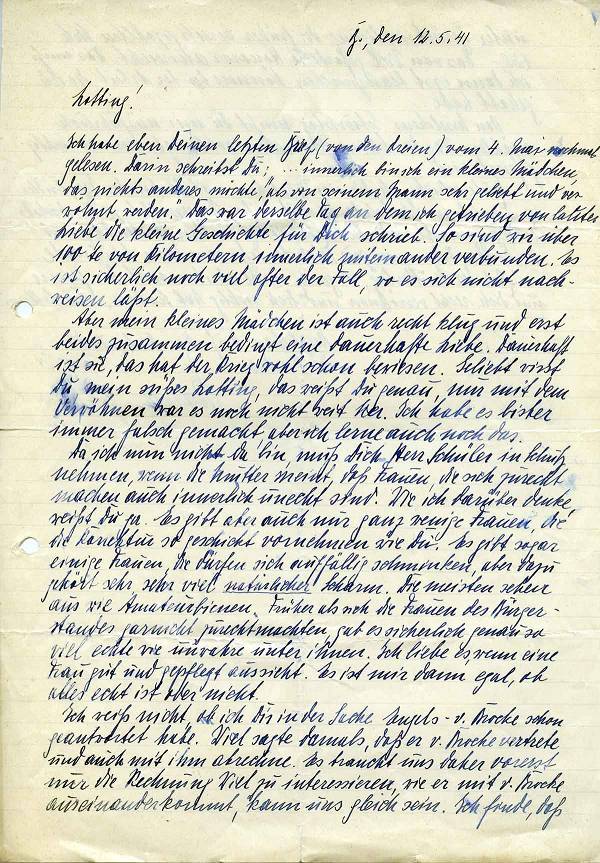 J., den 12.5.41
Lotting!
Ich habe eben Deinen letzten Brief (von den dreien) vom 4. Mai nochmal
gelesen. Darin schreibst Du: „... innerlich bin ich ein kleines Mädchen,
das nichts anderes möchte, als von seinem Mann sehr geliebt und ver
wöhnt werden." Das war derselbe Tag an dem ich getrieben von lauter
Liebe die kleine Geschichte für Dich schrieb. So sind wir über
100te von Kilometern innerlich miteinander verbunden. Es
ist sicherlich noch viel öfter der Fall, wo es sich nicht nach-
weisen läßt.
Aber mein kleines Mädchen ist auch recht klug und erst
beides zusammen bedingt eine dauerhafte Liebe. Dauerhaft
ist sie, das hat der Krieg wohl schon bewiesen. Geliebt wirst
Du mein süßes Lotting, das weißt Du genau, nur mit dem
Verwöhnen war es noch nicht weit her. Ich habe es bisher
immer falsch gemacht aber ich lerne auch noch das.
Da ich nun nicht da bin, muß Dich Herr Schüler in Schutz
nehmen, wenn die Mutter meint, daß Frauen, die sich zurecht
machen auch innerlich unecht sind. Wie ich darüber denke,
weißt Du ja. Es gibt aber auch nur ganz wenige Frauen, die
die Korrektur so geschickt vornehmen wie Du. Es gibt sogar
einige Frauen, die dürfen sich auffällig schminken, aber dazu
gehört sehr sehr viel natürlicher Scharm. Die meisten sehen
aus wie Amateurbienen. Früher als sich die Frauen des Bürger-
standes garnicht zurechtmachten, gab es sicherlich genau so
viel echte wie unwahre unter ihnen. Ich liebe es, wenn eine
Frau gut und gepflegt aussieht. Es ist mir dann egal, ob
alles echt ist oder nicht.
Ich weiß nicht, ob ich Dir in der Sache Engels - v. Brocke schon
geantwortet habe. Viel sagte damals, daß er v. Brocke vertrete
und auch mit ihm abrechne. Es braucht uns daher vorerst
nur die Rechnung Viel zu interessieren, wie er mit v. Brocke
auseinanderkommt, kann uns gleich sein. Ich fände, daß